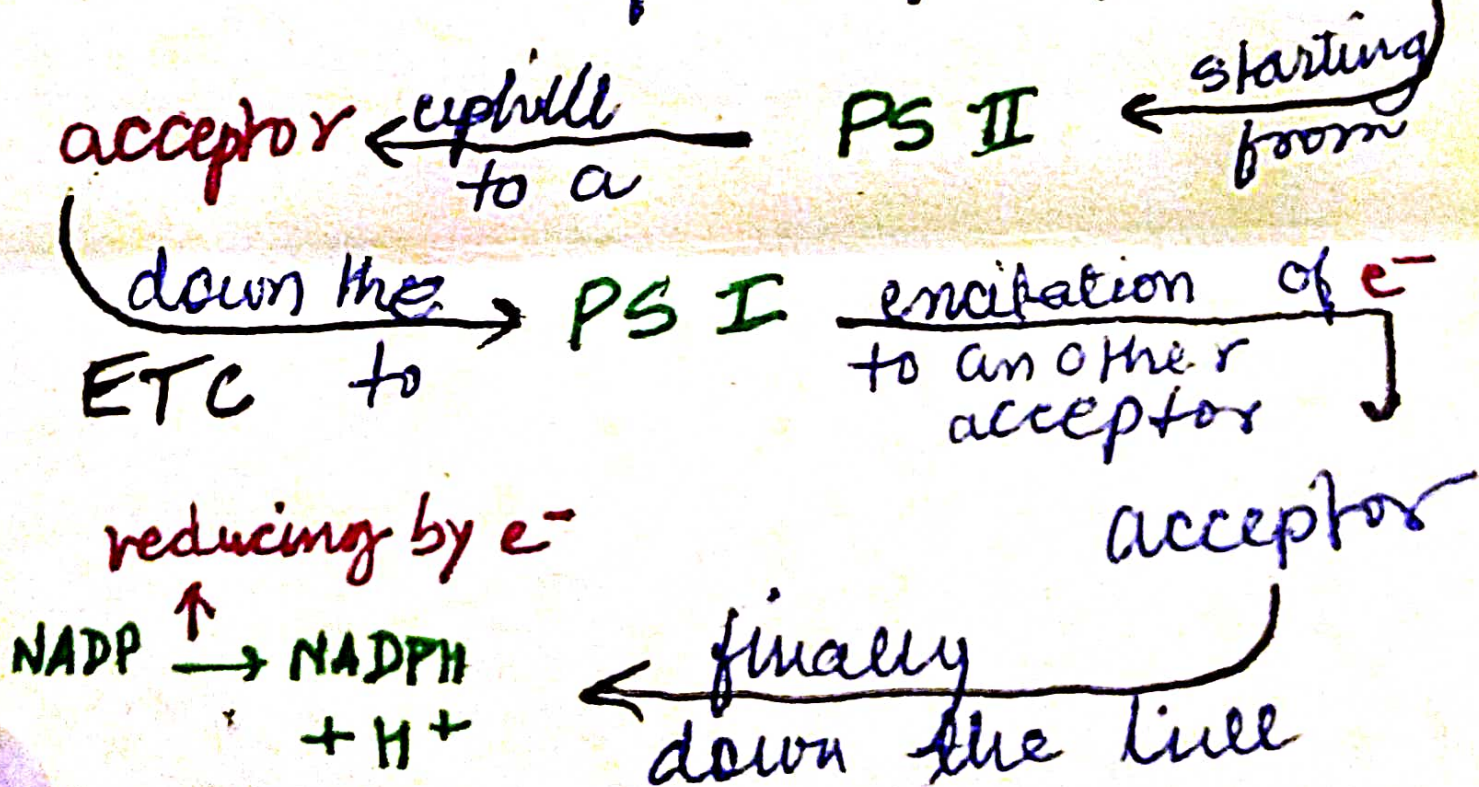 acceptor ← uphill to a PS II ← starting from
down the ETC to → PS I encitation of e⁻ to another acceptor
acceptor
reducing by e⁻
↑
NADP → NADPH + H⁺ ← finally down the hill